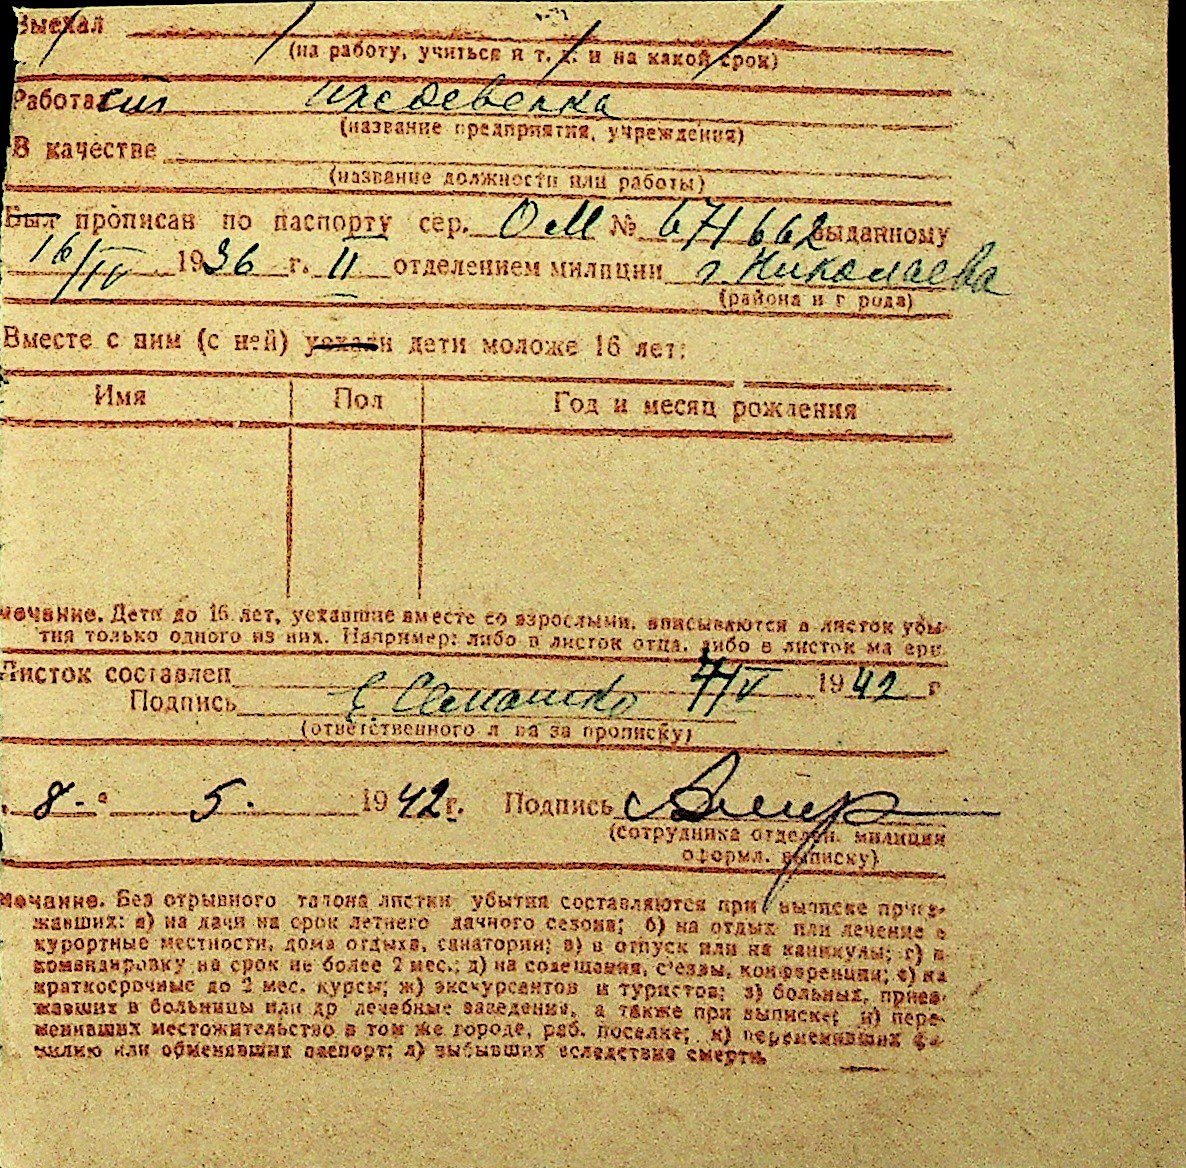 Выехал
(на работу, учиться и т. д. и на какой срок)
Работа иждевенка
(название предприятия, учреждения)
В качестве
(название должности или работы)
Был прописан по паспорту сер. ОМ № 671662 выданному
16/IV 1936 г. II отделением милиции г. Николаева
(района и г рода)
Вместе с ним (с ней) уехали дети моложе 16 лет:
Имя Пол Год и месяц рождения
мечание. Дети до 16 лет, уехавшие вместе со взрослыми, вписываются в листок убы-
тия только одного из них. Например: либо в листок отца, либо в листок ма ери.
Листок составлен 4/V 1942 г
Подпись Е Семашко
(ответственного л ца за прописку)
8. 5. 1942 г. Подпись
(сотрудника отделен. милиции
оформл. выписку)
мечание. Без отрывного талона листки убытия составляются при выписке приез-
жавших: а) на дачи на срок летнего дачного сезона; б) на отдых или лечение в
курортные местности, дома отдыха, санатории; в) в отпуск или на каникулы; г) в
командировку на срок не более 2 мес.; д) на совещания, с'езды, конференции; е) на
краткосрочные до 2 мес. курсы; ж) экскурсантов и туристов; з) больных, приез-
жавших в больницы или др лечебные заведения, а также при выписке; и) пере-
менивших местожительство в том же городе, раб. поселке; к) переменивших фа-
милию или обменявших паспорт; л) выбывших вследствие смерти.